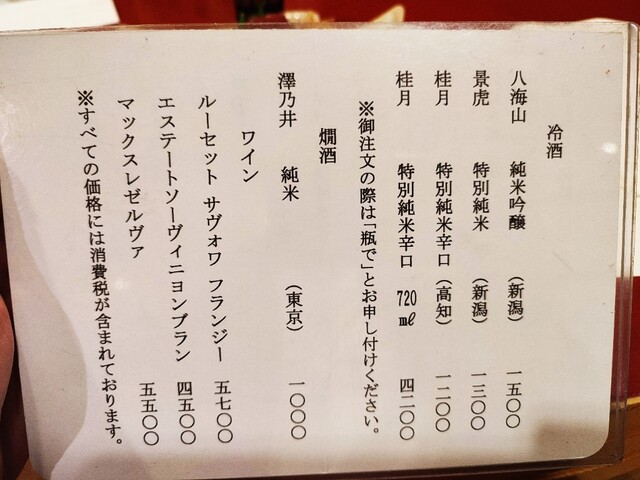 冷酒
八海山 純米吟醸 (新潟) 一五〇〇
景虎 特別純米 (新潟) 一三〇〇
桂月 特別純米辛口 (高知) 一二〇〇
桂月 特別純米辛口 720㎖ 四二〇〇
※御注文の際は「瓶で」とお申し付けください。
燗酒
澤乃井 純米 (東京) 一〇〇〇
ワイン
ルーセット サヴォワ フランジー 五七〇〇
エステートソーヴィニヨンブラン 四五〇〇
マックスレゼルヴァ 五五〇〇
※すべての価格には消費税が含まれております。